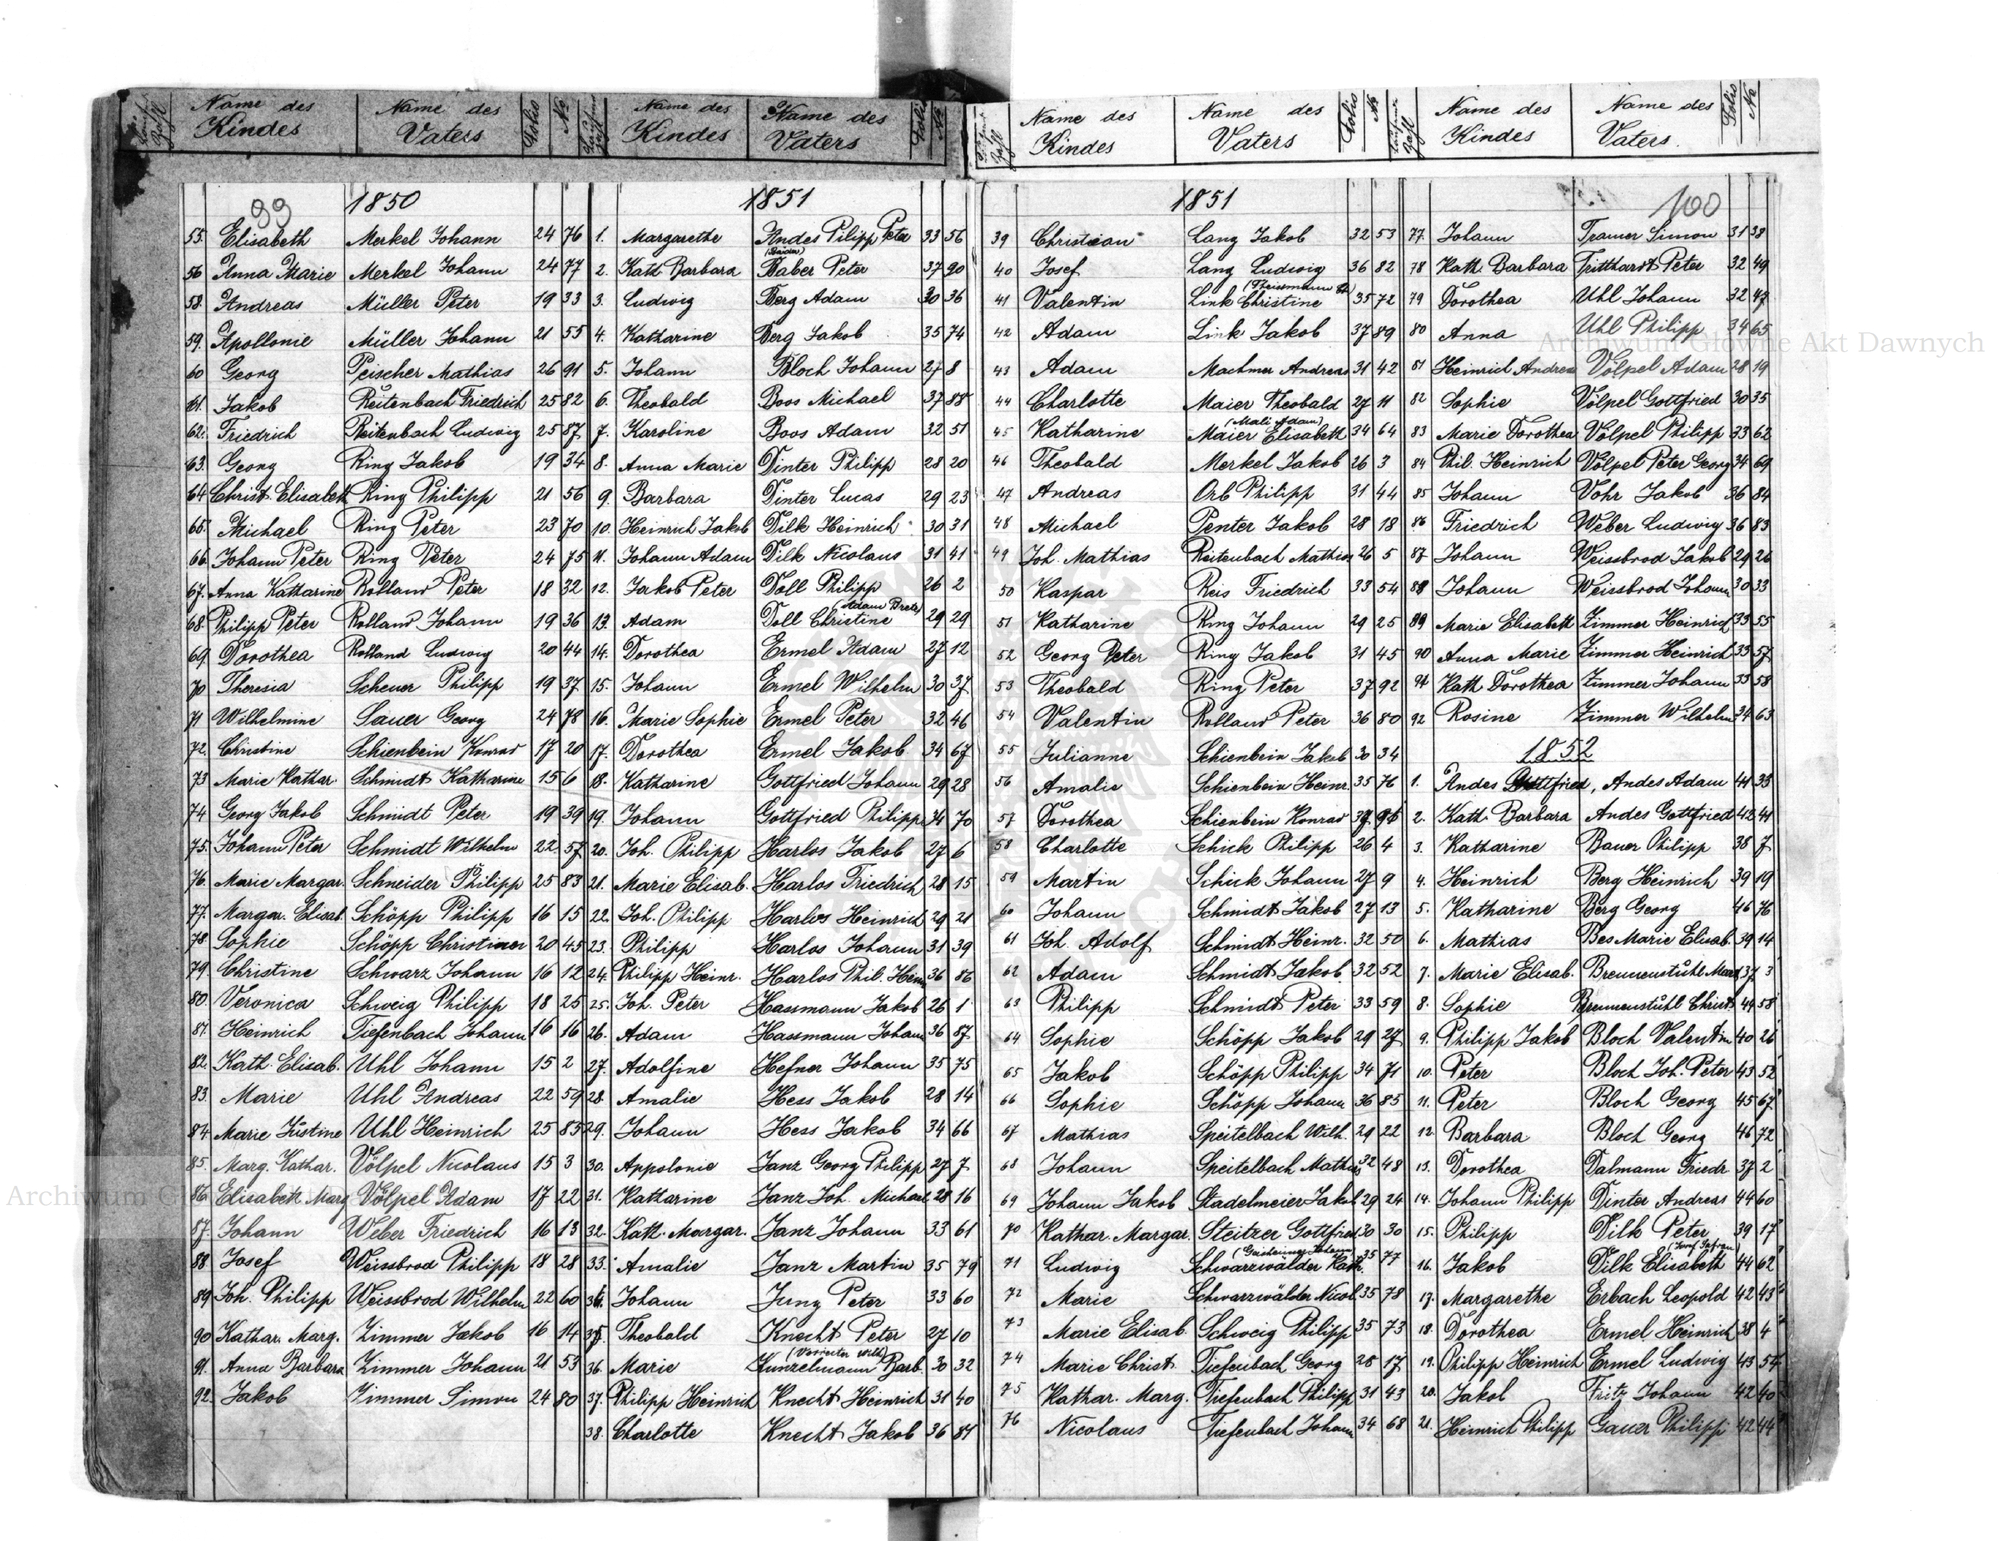 Name des Kindes Name des Vaters Folio No
Name des Kindes Name des Vaters Folio No
99 1850
55. Elisabeth Merkel Johann 24 76
56 Anna Marie Merkel Johann 24 77
58. Andreas Müller Peter 19 33
59. Apollonie Müller Johann 21 55
60 Georg Perscher Mathias 26 91
61. Jakob Reitenbach Friedrich 25 82
62. Friedrich Reitenbach Ludwig 25 87
63. Georg Ring Jakob 19 34
64 Christ. Elisabeth Ring Philipp 21 56
65. Michael Ring Peter 23 70
66. Johann Peter Ring Peter 24 75
67. Anna Katharine Rolland Peter 18 32
68. Philipp Peter Rolland Johann 19 36
69. Dorothea Rolland Ludwig 20 44
70 Theresia Scheuer Philipp 19 37
71 Wilhelmine Sauer Georg 24 78
72. Christine Schienbein Konrad 17 20
73 Marie Kathar. Schmidt Katharine 15 6
74 Georg Jakob Schmidt Peter 19 39
75. Johann Peter Schmidt Wilhelm 22 57
76. Marie Margar. Schneider Philipp 25 83
77. Margar. Elisab. Schöpp Philipp 16 15
78. Sophie Schöpp Christiner 20 45
79. Christine Schwarz Johann 16 12
80. Veronica Schweig Philipp 18 25
81. Heinrich Tiefenbach Johann 16 16
82. Kath. Elisab. Uhl Johann 15 2
83. Marie Uhl Andreas 22 59
84 Marie Justine Uhl Heinrich 25 85
85. Marg. Kathar. Völpel Nicolaus 15 3
86. Elisabeth Marg Völpel Adam 17 22
87. Johann Weber Friedrich 16 13
88. Josef Weissbrod Philipp 18 28
89 Joh. Philipp Weissbrod Wilhelm 22 60
90 Kathar. Marg. Zimmer Jakob 16 14
91. Anna Barbara Zimmer Johann 21 53
92. Jakob Zimmer Simon 24 80
1851
1. Margarethe Andes Pilipp Peter 33 56
2. Kath Barbara Baber Peter 37 90
3. Ludwig Berg Adam 30 36
4. Katharine Berg Jakob 35 74
5. Johann Bloch Johann 27 8
6. Theobald Boos Michael 37 88
7. Karoline Boos Adam 32 51
8. Anna Marie Dinter Philipp 28 20
9. Barbara Dinter Lucas 29 23
10. Heinrich Jakob Dilk Heinrich 30 31
11. Johann Adam Dilk Nicolaus 31 41
12. Jakob Peter Doll Philipp 26 2
13. Adam Doll Christine 29 29
14. Dorothea Ermel Adam 27 12
15. Johann Ermel Wilhelm 30 37
16. Marie Sophie Ermel Peter 32 46
17. Dorothea Ermel Jakob 34 67
18. Katharine Gottfried Johann 29 28
19. Johann Gottfried Philipp 34 70
20. Joh. Philipp Harlos Jakob 27 6
21. Marie Elisab. Harlos Friedrich 28 15
22. Joh. Philipp Harlos Heinrich 29 21
23. Philipp Harlos Johann 31 39
24. Philipp Heinr. Harlos Phil. Hein 36 86
25. Joh. Peter Hassmann Jakob 26 1
26. Adam Hassmann Johann 36 87
27. Adolfine Hefner Johann 35 75
28. Amalie Hess Jakob 28 14
29. Johann Hess Jakob 34 66
30. Appolonie Janz Georg Philipp 27 7
31. Katharine Janz Joh. Michael 28 16
32. Kath. Margar. Janz Johann 33 61
33. Amalie Janz Martin 35 79
34. Johann Jung Peter 33 60
35. Theobald Knecht Peter 27 10
36 Marie Kunzelmann Barb. 30 32
37. Philipp Heinrich Knecht Heinrich 31 40
38. Charlotte Knecht Jakob 36 81
Name des Kindes Name des Vaters Folio No
Name des Kindes Name des Vaters. Folio No
1851
39 Christian Lang Jakob 32 53
40 Josef Lang Ludwig 36 82
41 Valentin Link Christine 35 72
42 Adam Link Jakob 37 89
43 Adam Machmer Andreas 31 42
44 Charlotte Maier Theobald 27 11
(Mali Adam)
45 Katharine Maier Elisabeth 34 64
46 Theobald Merkel Jakob 26 3
47 Andreas Orb Philipp 31 44
48 Michael Penter Jakob 28 18
49 Joh. Mathias Reitenbach Mathias 26 5
50 Kaspar Reis Friedrich 33 54
51 Katharine Ring Johann 29 25
52 Georg Peter Ring Jakob 31 45
53 Theobald Ring Peter 37 92
54 Valentin Rolland Peter 36 80
55 Julianne Schienbein Jakob 30 34
56 Amalie Schienbein Heinr. 35 76
57 Dorothea Schienbein Konrad 37 96
58 Charlotte Schick Philipp 26 4
59 Martin Schick Johann 27 9
60 Johann Schmidt Jakob 27 13
61 Joh. Adolf Schmidt Heinr. 32 50
62 Adam Schmidt Jakob 32 52
63 Philipp Schmidt Peter 33 59
64 Sophie Schöpp Jakob 29 27
65 Jakob Schöpp Philipp 34 71
66 Sophie Schöpp Johann 36 85
67 Mathias Speitelbach Wilh. 29 22
68 Johann Speitelbach Mathias 32 48
69 Johann Jakob Stadelmeier Jakob 29 24
70 Kathar. Margar. Steitzer Gottfried 30 30
71 Ludwig Schwarzwälder Kath. 35 77
72 Marie Schwarzwälder Nicol. 35 78
73 Marie Elisab. Schweig Philipp 35 73
74 Marie Christ. Tiefenbach Georg 28 17
75 Kathar. Marg. Tiefenbach Philipp 31 43
76 Nicolaus Tiefenbach Johann 34 68
100
77. Johann Tramer Simon 31 38
78 Kath. Barbara Tritthardt Peter 32 49
79 Dorothea Uhl Johann 32 47
80 Anna Uhl Philipp 34 65
81 Heinrich Andreas Völpel Adam 28 19
82 Sophie Völpel Gottfried 30 35
83 Marie Dorothea Völpel Philipp 33 62
84 Phil. Heinrich Völpel Peter Georg 34 69
85 Johann Vohr Jakob 36 84
86 Friedrich Weber Ludwig 36 83
87 Johann Weissbrod Jakob 29 26
88 Johann Weissbrod Johann 30 33
89 Marie Elisabeth Zimmer Heinrich 33 55
90 Anna Marie Zimmer Heinrich 33 57
91 Kath Dorothea Zimmer Johann 33 58
92 Rosine Zimmer Wilhelm 34 63
1852
1. Andes Gottfried, Andes Adam 41 33
2. Kath. Barbara Andes Gottfried 42 41
3. Katharine Bauer Philipp 38 7
4. Heinrich Berg Heinrich 39 19
5. Katharine Berg Georg 46 76
6. Mathias Bes Marie Elisab. 39 14
7. Marie Elisab. Brennenstuhl Marg 37 3
8. Sophie Brennenstuhl Christ 44 58
9. Philipp Jakob Bloch Valentin 40 26
10. Peter Bloch Joh. Peter 43 52
11. Peter Bloch Georg 45 67
12 Barbara Bloch Georg 46 72
13. Dorothea Dalmann Friedr 37 2
14. Johann Philipp Dinter Andreas 44 60
15. Philipp Dilk Peter 39 17
16. Jakob Dilk Elisabeth 44 62
17. Margarethe Erbach Leopold 42 43
18. Dorothea Ermel Heinrich 38 4
19. Philipp Heinrich Ermel Ludwig 43 57
20. Jakob Fritz Johann 42 40
21. Heinrich Philipp Gauer Philipp 42 44
Archiwum Główne Akt Dawnych